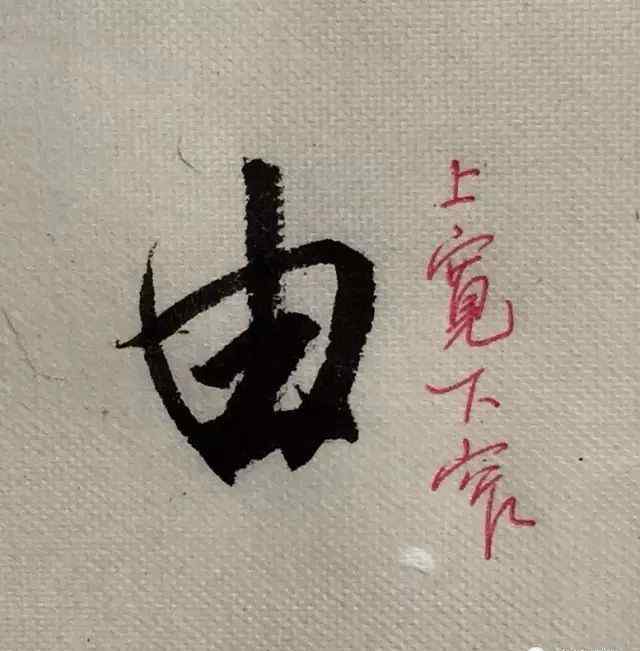 由
上寬下窄